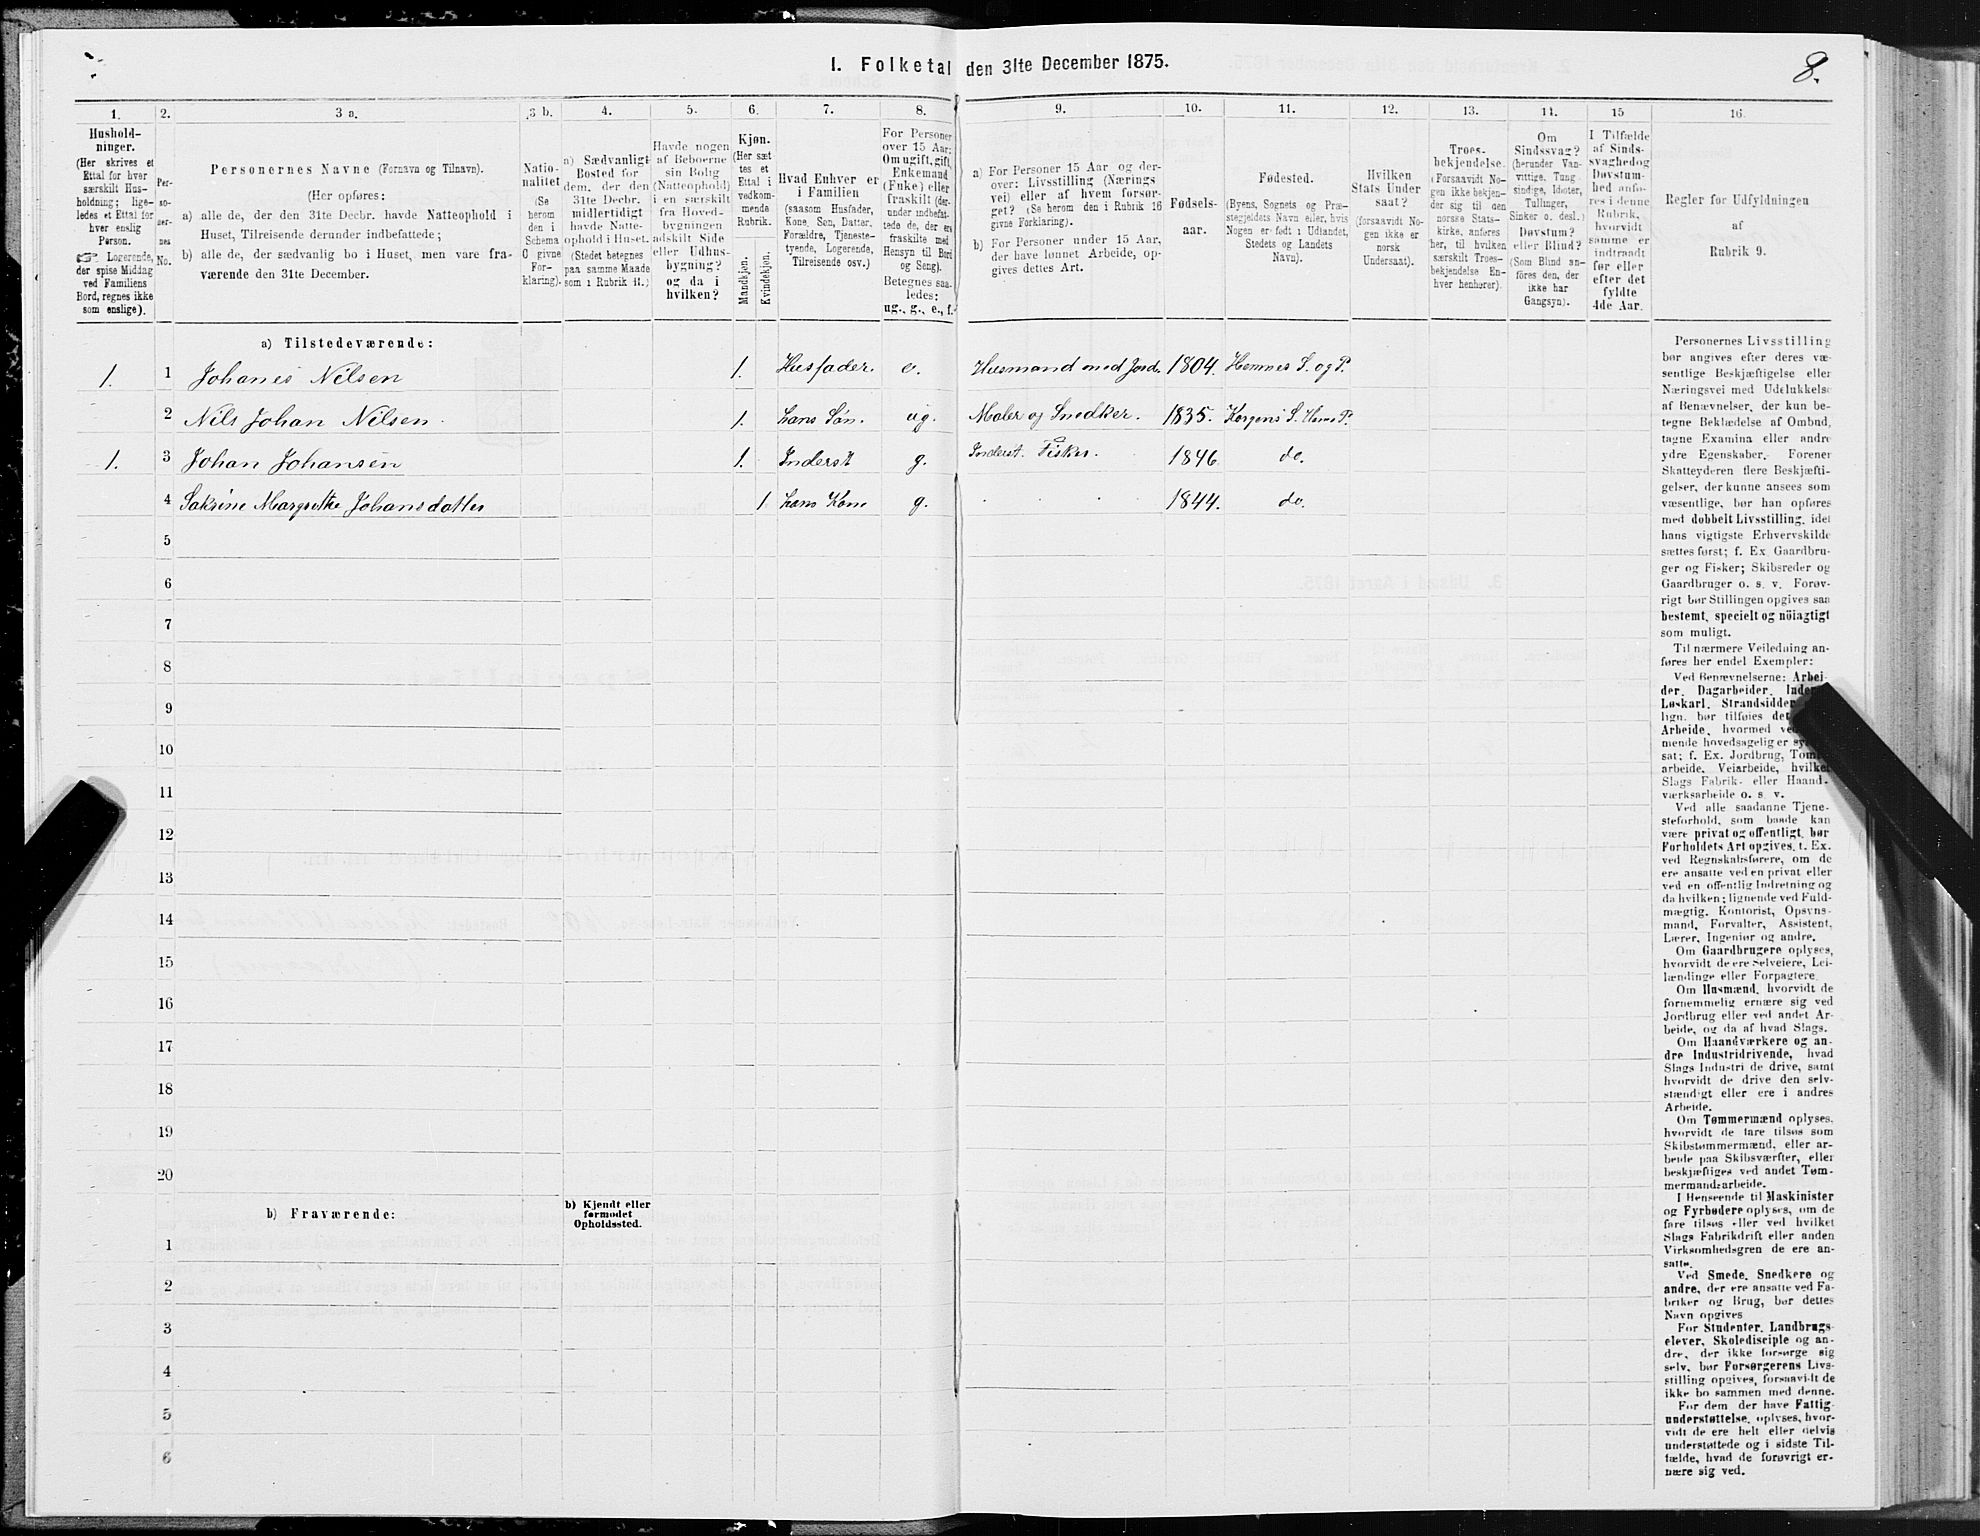 I. Folketal den 31te December 1875.
8.
1.
Hushold-
ninger.
(Her skrives et
Ettal for hver
særskilt Hus-
holdning; lige-
ledes et Ettal for
hver enslig
Person.
Logerende,
der spise Middag
ved Familiens
Bord, regnes ikke
som enslige).
2.
Per-
so-
ner-
nes
No.
3 a.
Personernes Navne (Fornavn og Tilnavn).
(Her opføres:
a) alle de, der den 31te Decbr. havde Natteophold i
Huset, Tilreisende derunder indbefattede;
b) alle de, der sædvanlig bo i Huset, men vare fra-
værende den 31te December.
3 b.
Natio-
nalitet
(Se
herom
den i
Schema
O givne
For-
klaring).
4.
a) Sædvanligt
Bosted for
dem, der den
31te Decbr.
midlertidigt
havde Natte-
ophold i Huset.
(Stedet betegnes
paa samme Maade
som i Rubrik 11.)
5.
Havde nogen
af Beboerne
sin Bolig
(Natteophold)
i en særskilt
fra Hoved-
bygningen
adskilt Side
eller Udhus-
bygning?
og da i
hvilken?
6.
Kjøn.
(Her sæt
tes et
Ettal i
vedkom-
mende
Rubrik.
Mandkjøn.
Kvindekjøn.
7.
Hvad Enhver er
i Familien
(saasom Husfader,
Kone, Søn, Datter,
Forældre, Tjeneste-
tyende, Logerende,
Tilreisende osv.)
8.
For Personer
over 15 Aar:
Om ugift, gift,
Enkemand
(Enke) eller
fraskilt (der-
under indbefat-
tede de, der ere
fraskilte med
Hensyn til Bord
og Seng).
Betegnes saa-
ledes:
ug., g., e., f.
9.
a) For Personer 15 Aar og der-
over: Livsstilling (Nærings
vei) eller af hvem forsør-
get? (Se herom den i Rubrik 16
givne Forklaring).
b) For Personer under 15 Aar,
der have lønnet Arbeide, op-
gives dettes Art.
10.
Fødsels-
aar.
11.
Fødested.
(Byens, Sognets og Præ-
stegjeldets Navn eller, hvis
Nogen er født i Udlandet,
Stedets og Landets
Navn).
12.
Hvilken
Stats Under
saat?
(forsaavidt No-
gen ikke er
norsk
Undersaat).
13.
Troes-
bekjendelse.
(Forsaavidt No-
gen ikke bekjen-
der sig til den
norske Stats-
kirke, anføres
her, til hvilken
særskilt Troes-
bekjendelse En-
hver henhører).
14.
Om
Sindssvag?
(herunder Van-
vittige, Tung-
sindige, Idioter,
Tullinger,
Sinker o. desl.)
Døvstum?
eller Blind?
(Som Blind an-
føres den, der
ikke har
Gangsyn).
15
I Tilfælde
af Sinds-
svaghed og
Døvstum-
hed anfø-
res i denne
Rubrik,
hvorvidt
samme er
indtraadt
før eller
efter det
fyldte
4de Aar.
16.
Regler for Udfyldningen
af
Rubrik 9.
a) Tilstedeværende:
1. 1 Johanes Nilsen 1. Husfader. e. Husmand med Jord. 1804. Hemnes S. og P.
2 Nils Johan Nilsen. 1. hans Søn. ug. Maler og Snedker. 1835. Korgens S. Hems P.
1. 3 Johan Johansen 1. Inderst g. Inderst. Fisker. 1846 do.
4 Sakrine Margrethe Johansdatter 1 hans Kone g. 1844. do.
5
6
7
8
9
10
11
12
13
14
15
16
17
18
19
20
b) Fraværende:
b) Kjendt eller
formodet
Opholdssted.
1
2
3
4
5
6
Personernes Livsstilling
bør angives efter deres væ-
sentlige Beskjæftigelse eller
Næringsvei med Udelukkelse
af Benævnelser, der kun be-
tegne Beklædelse af Ombud,
tagne Examina eller andre
ydre Egenskaber. Forener
Skatteyderen flere Beskjæfti-
gelser, der kunne ansees som
væsentlige, bør han opføres
med dobbelt Livsstilling, idet
hans vigtigste Erhvervskilde
sættes først; f. Ex Gaardbru-
ger og Fisker; Skibsreder og
Gaardbruger o. s. v. Forøv-
rigt bør Stillingen opgives saa
bestemt, specielt og nöiagtigt
som muligt.
Til nærmere Veiledning an-
føres her endel Exempler:
Ved Benævnelserne: Arbei-
der, Dagarbeider,
Løskarl, Strandsidder
lign. bør tilføies det
Arbeide, hvormed
mende hovedsagelig er
sat; f. Ex. Jordbrug,
arbeide, Veiarbeide, hvilket
Slags Fabrik- eller Haand-
værksarbeide o. s. v.
Ved alle saadanne Tjene-
steforhold, som baade kan
være privat og offentligt, bør
Forholdets Art opgives, t. Ex.
ved Regnskabsførere, om de
ere ansatte ved en privat eller
ved en offentlig Indretning og
da hvilken; lignende ved Fuld-
mægtig, Kontorist, Opsyns-
mand, Forvalter, Assistent,
Lærer, Ingeniør og andre.
Om Gaardbrugere oplyses,
hvorvidt de ere Selveiere, Lei-
lændinge eller Forpagtere.
Om Husmænd, hvorvidt de
fornemmelig ernære sig ved
Jordbrug eller ved andet Ar-
beide, og da af hvad Slags.
Om Haandværkere og an-
dre Industridrivende, hvad
Slags Industri de drive, samt
hvorvidt de drive den selv-
stændigt eller ere i andres
Arbeide.
Om Tømmermænd oplyses,
hvorvidt de fare tilsøs som
Skibstømmermænd, eller ar-
beide paa Skibsværfter, eller
beskjæftiges ved andet Tøm-
mermandsarbeide.
I Henseende til Maskinister
og Fyrbødere oplyses, om de
fare tilsøs eller ved hvilket
Slags Fabrikdrift eller anden
Virksomhedsgren de ere an-
satte.
Ved Smede, Snedkere og
andre, der ere ansatte ved Fa-
briker og Brug, bør dettes
Navn opgives
For Studenter, Landbrugs-
elever, Skoledisciple og an-
dre, der ikke forsørge sig
selv, bør Forsørgerens Livs-
stilling opgives, forsaavidt de
ikke bo sammen med denne.
For dem der have Fattig-
understøttelse, oplyses, hvor-
vidt de ere helt eller delvis
understøttede og i sidste Til-
fælde, hvad de forøvrigt er-
nære sig ved.